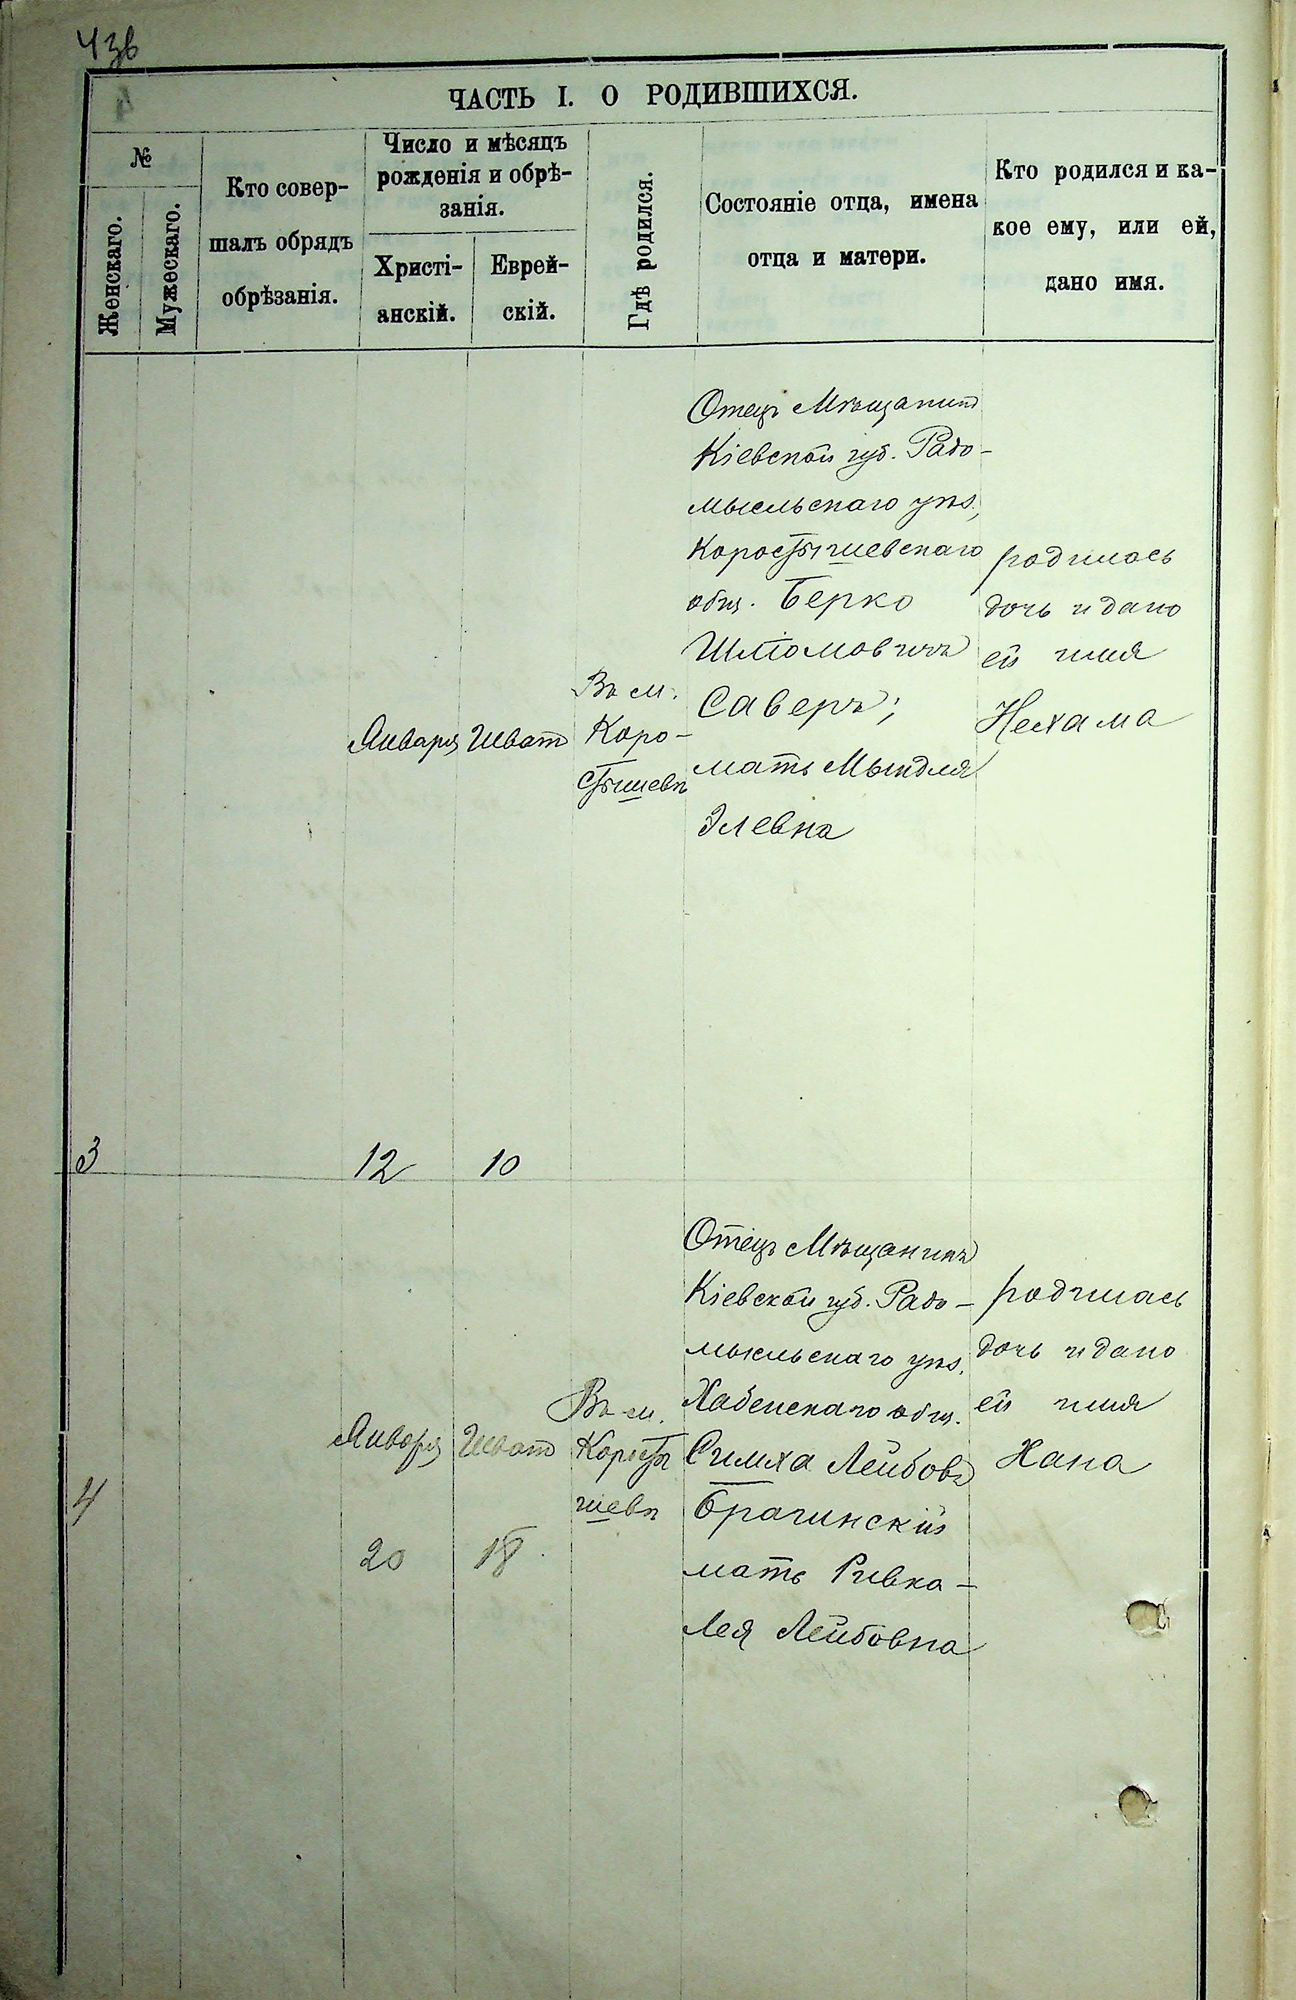 43в
ЧАСТЬ I. О РОДИВШИХСЯ.
№
Женскаго.
Мужескаго.
Кто совер-
шалъ обрядъ
обрѣзанія.
Число и мѣсяцъ
рожденія и обрѣ-
занія.
Христі-
анскій.
Еврей-
скій.
Гдѣ родился.
Состояніе отца, имена
отца и матери.
Кто родился и ка-
кое ему, или ей,
дано имя.
3
Января
12
Шват
10
Въ м.
Коро-
стышевѣ
Отецъ Мѣщанинъ
Кіевской губ. Радо-
мысльскаго уѣз.,
Коростышевскаго
общ. Берко
Шліомовичъ
Саверъ;
мать Мындля
Элевна
родилась
дочь и дано
ей имя
Нехама
4
Января
20
Шват
18
Въ м.
Коросты
шевѣ
Отецъ Мѣщанинъ
Кіевской губ. Радо-
мысльскаго уѣз.
Хабенскаго общ.
Симха Лейбовъ
Брагинскій
мать Ривка-
Лея Лейбовна
родилась
дочь и дано
ей имя
Хана